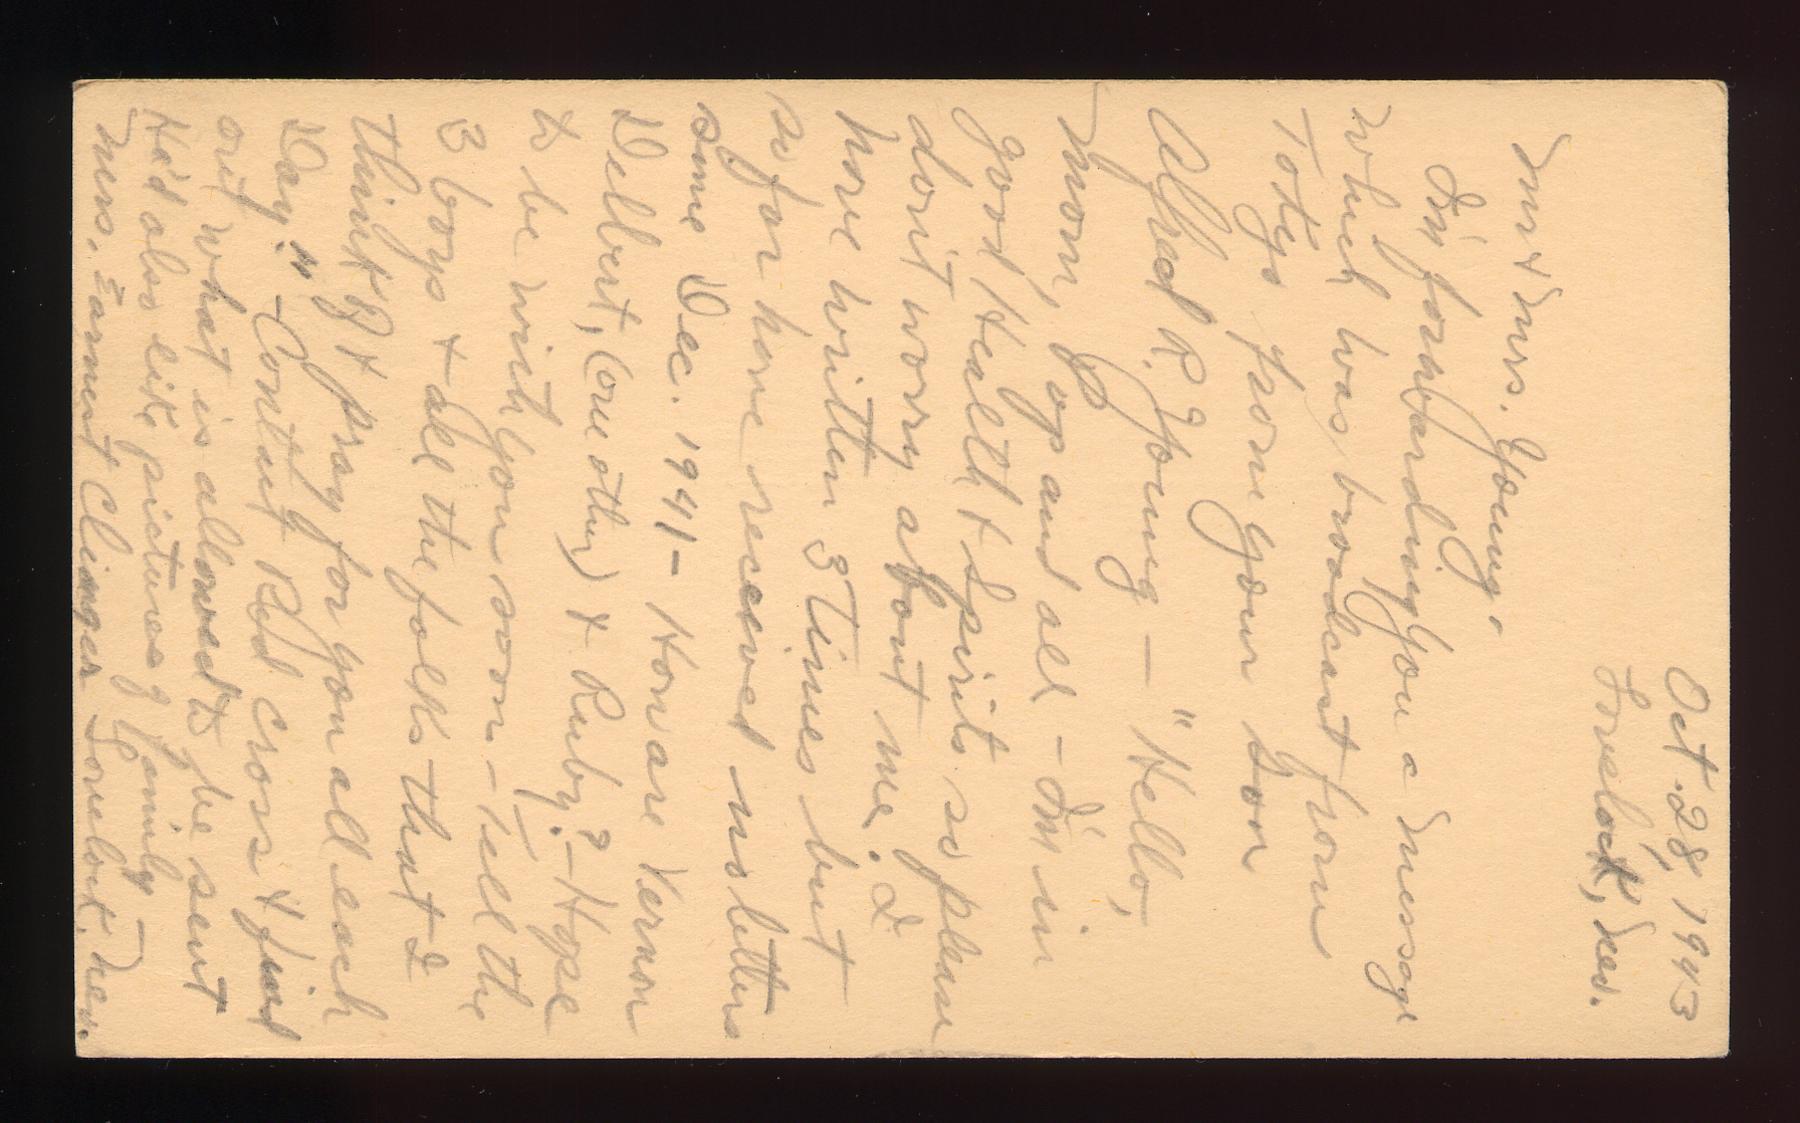 Oct. 28, 1943
Lovelock, Nev.
Mr & Mrs. Young -
I'm forwarding you a message
which was broadcast from
Tokyo from your son
Alfred R. Young — "Hello,
Mom, Pop and all - I'm in
good health & spirits so please
don't worry about me. I
have written 3 times but
so far have received no letters
since Dec. 1941 - How are Vernon
Delbert, (one other) & Ruby? - Hope
to be with you soon - Tell the
3 boys & all the folks that I
think of & pray for you all each
Day." - Contact Red Cross & find
out what is allowed to be sent
He'd also like pictures of family -
Mrs. Earnest Clinger Lovelock, Nev.